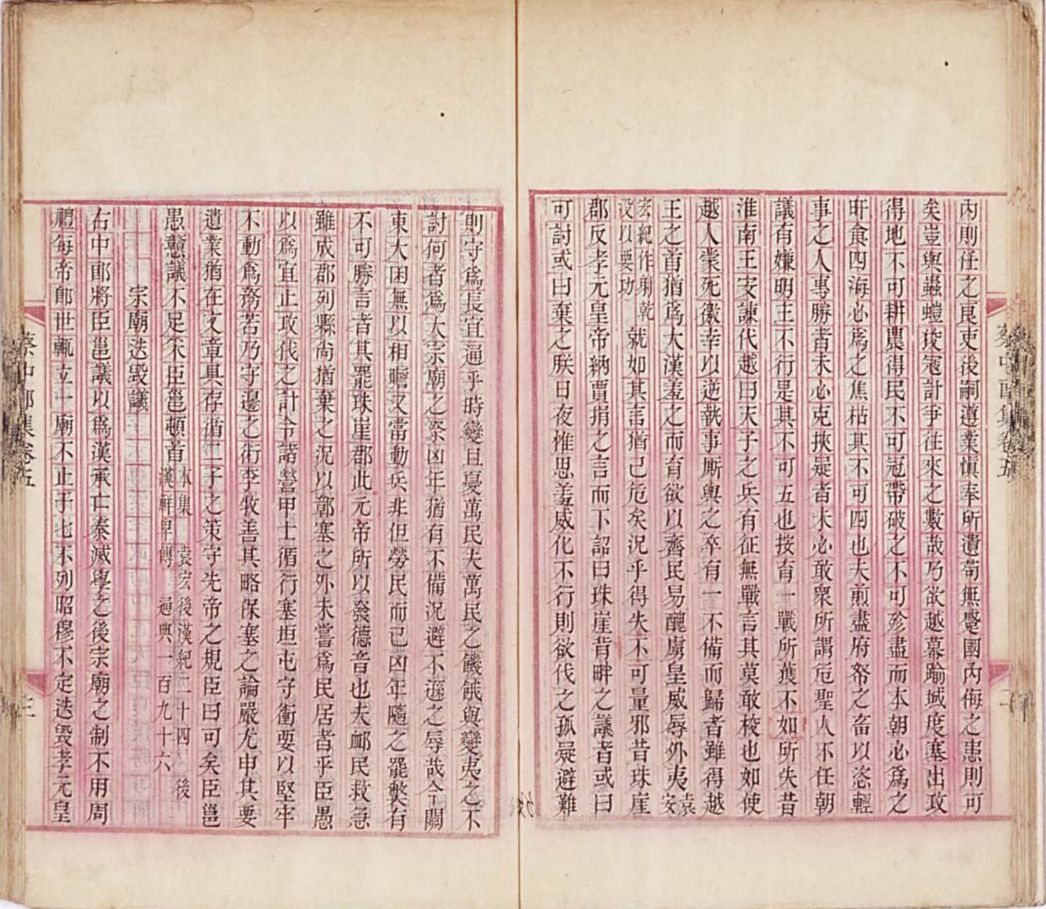 內則任之良吏後嗣遵業慎奉所遺苟無蹙國內侮之患則可
矣豈與蟲螘挍寇計爭往來之數哉乃欲越幕踰域度塞出攻
得地不可耕農得民不可冠帶破之不可殄盡而本朝必爲之
旰食四海必爲之焦枯其不可四也夫煎盡府帑之畜以恣輕
事之人專勝者未必克挾疑者未必敢衆所謂危聖人不任朝
議有嫌明王不行是其不可五也按育一戰所獲不如所失昔
淮南王安諫伐越曰天子之兵有征無戰言其莫敢校也如使
越人蒙死徼幸以逆執事厮輿之卒有一不備而歸者雖得越
王之首猶爲大漢羞之而育欲以齊民易醜虜皇威辱外夷袁
宏紀作射乾
沒以要功
就如其言猶已危矣況乎得失不可量邪昔珠崖
郡反孝元皇帝納賈捐之言而下詔曰珠崖背畔之議者或曰
可討或曰棄之朕日夜惟思羞威化不行則欲伐之孤疑避難
蔡中郎集卷五
則守爲長宜通乎時變且憂萬民夫萬民之饑餓與蠻夷之不
討何者爲大宗廟之祭凶年猶有不備況避不遜之辱哉今關
東大困無以相贍又當動兵非但勞民而已凶年隨之罷弊有
不可勝言者其罷珠崖郡此元帝所以發德音也夫䘏民救急
雖成郡列縣尚猶棄之況以鄣塞之外未嘗爲民居者乎臣愚
以爲宜止攻伐之計令諸營甲士循行塞垣屯守衝要以堅牢
不動爲務若乃守邊之術李牧善其略保塞之論嚴尤申其要
遺業猶在文章具存循二子之策守先帝之規臣曰可矣臣邕
愚戇議不足采臣邕頓首
本集 袁宏後漢紀二十四 後
漢鮮卑傳 通典一百九十六
宗廟迭毀議
右中郎將臣邕議以爲漢承亡秦滅學之後宗廟之制不用周
禮每帝即世輒立一廟不止于七不列昭穆不定迭毀孝元皇
蔡中郎集卷五
三